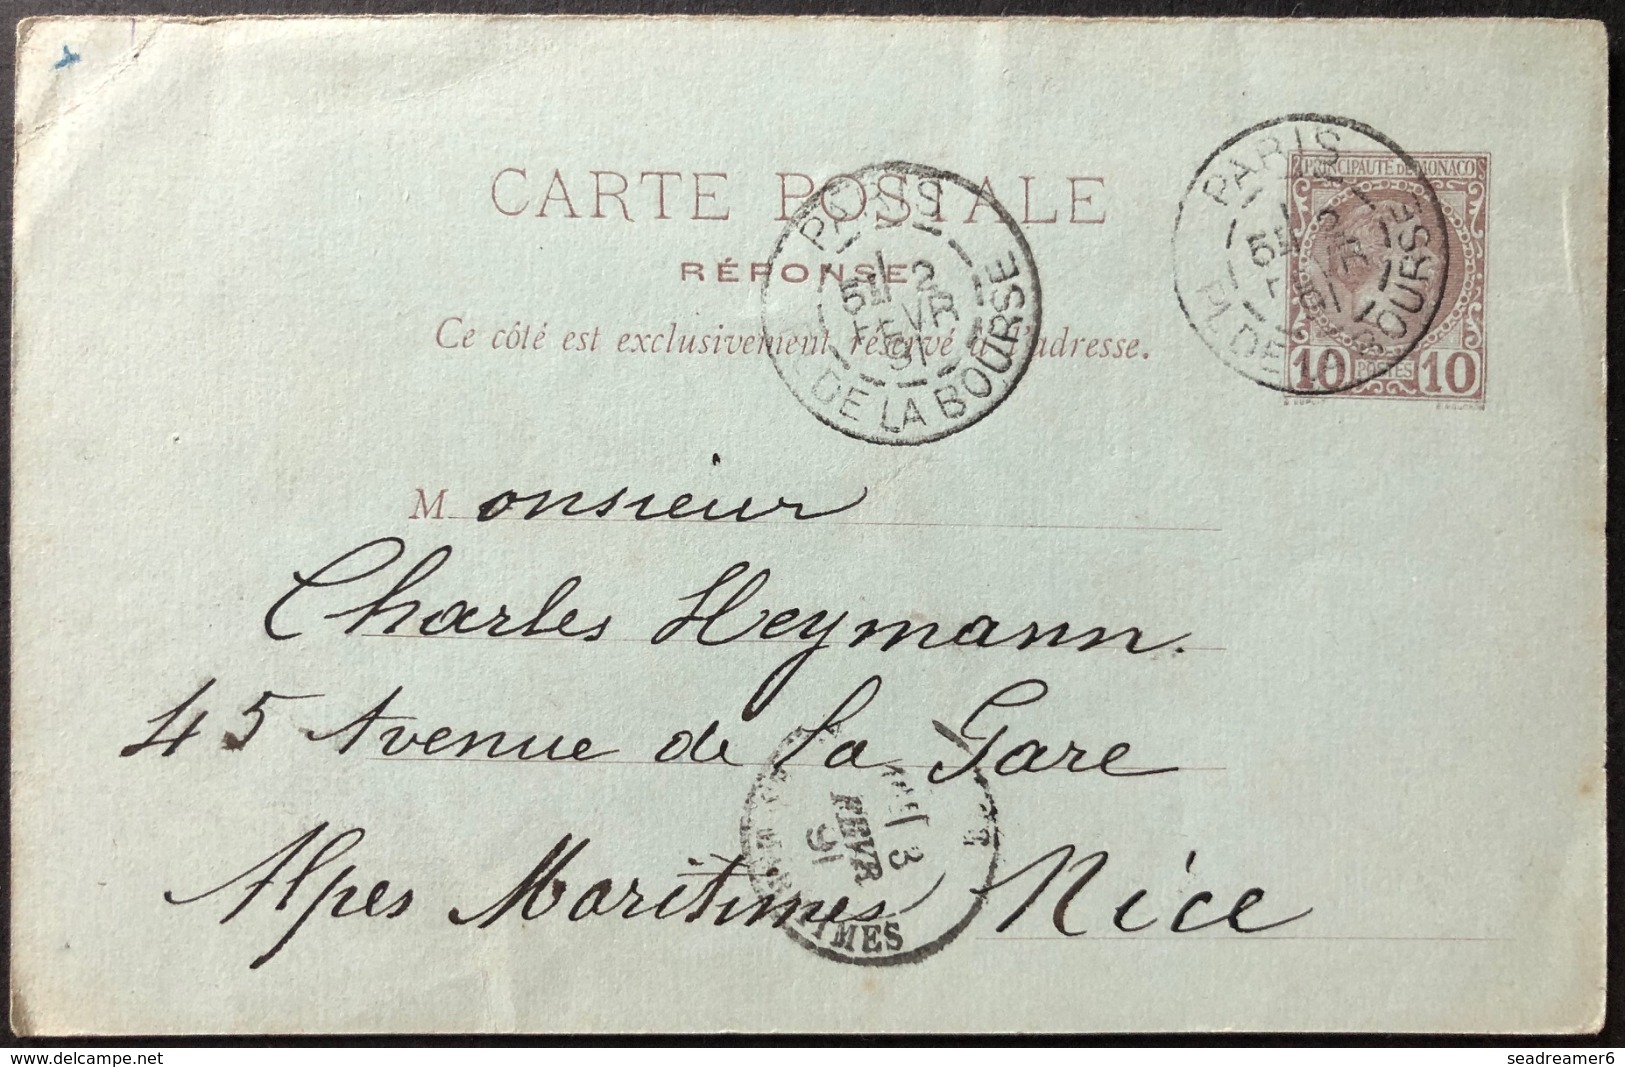 PRINCIPAUTÉ DE MONACO
10 POSTES 10
CARTE POSTALE
RÉPONSE
Ce côté est exclusivement réservé à l'adresse.
PARIS
5E 2
FEVR
91
PL. DE LA BOURSE
PARIS
5E 2
FEVR
91
PL. DE LA BOURSE
Monsieur
Charles Heymann.
45 Avenue de la Gare
Alpes Maritimes Nice
3
FEVR
91
MARITIMES
seadreamer6